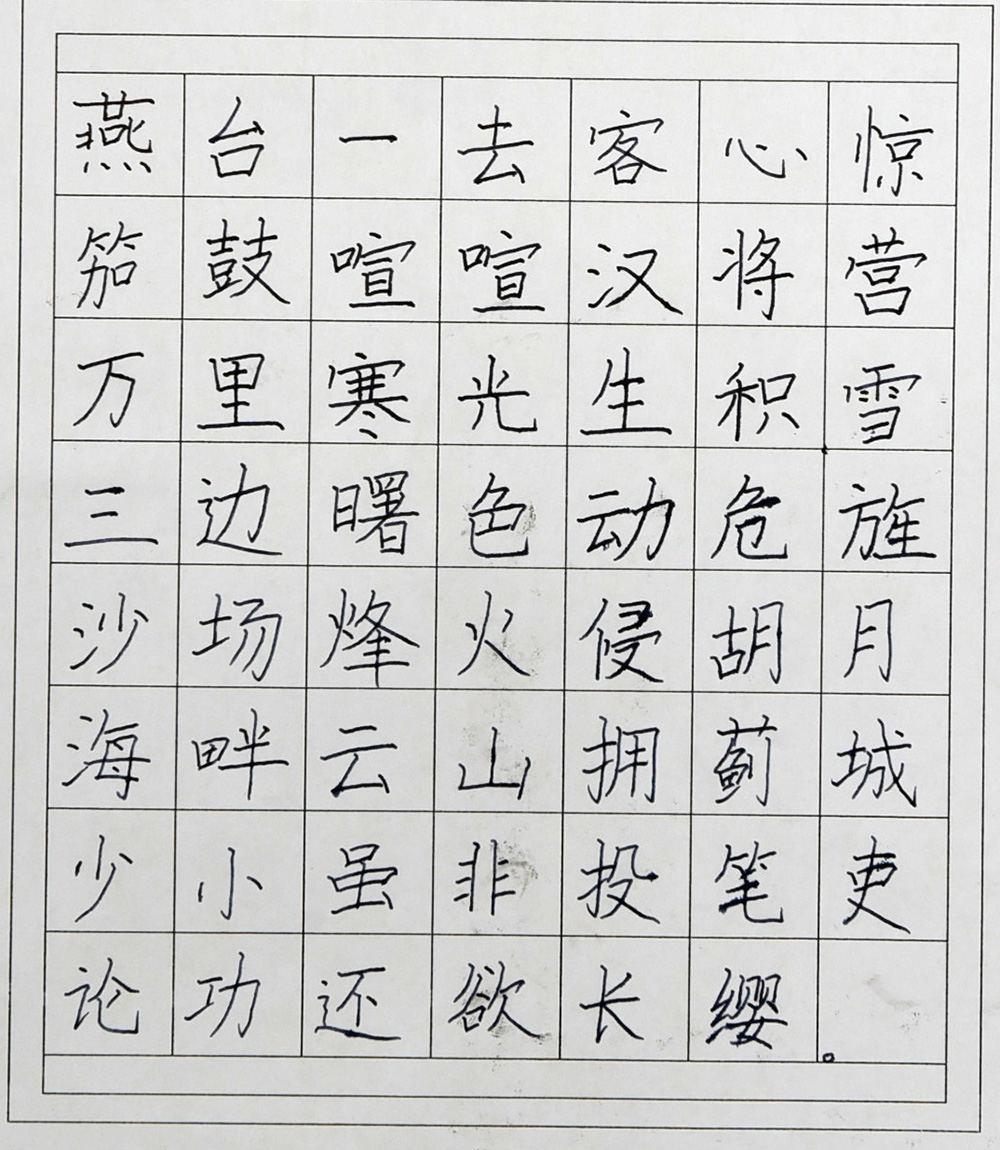 燕台一去客心惊
笳鼓喧喧汉将营
万里寒光生积雪
三边曙色动危旌
沙场烽火侵胡月
海畔云山拥蓟城
少小虽非投笔吏
论功还欲长缨。